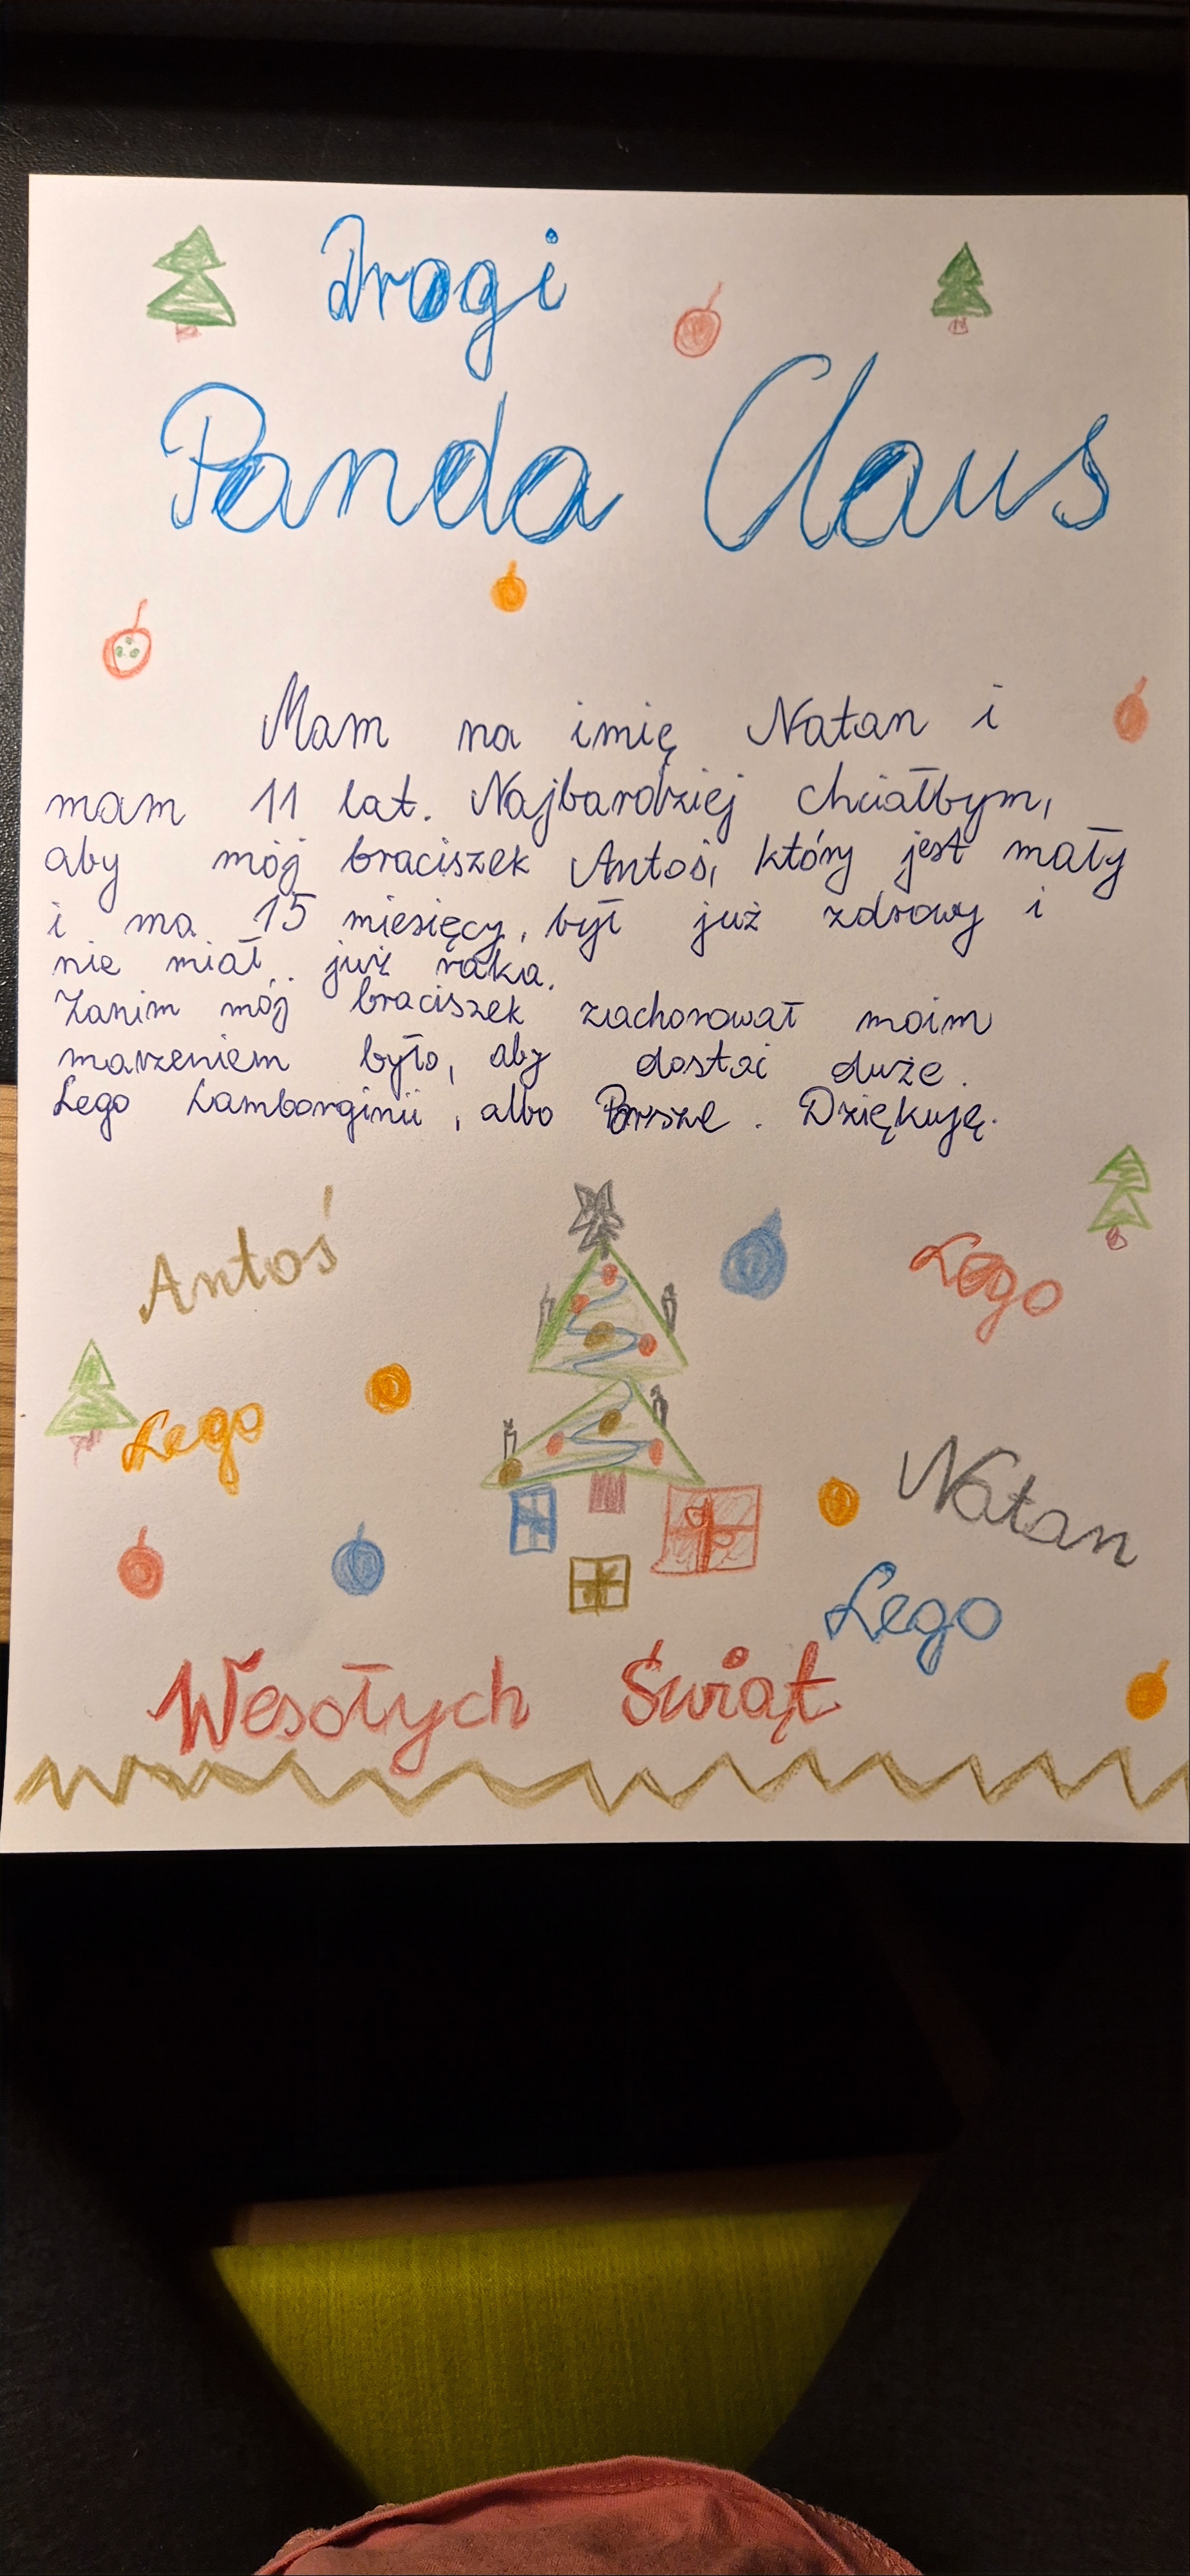 Drogi
Panda Claus
Mam na imię Natan i
mam 11 lat. Najbardziej chciałbym,
aby mój braciszek Antoś, który jest mały
i ma 15 miesięcy, był już zdrowy i
nie miał już raka.
Zanim mój braciszek zachorował moim
marzeniem było, aby dostać duże
Lego Lamborginii, albo Porszе. Dziękuję.
Antoś
Lego
Lego
Natan
Lego
Wesołych Świąt